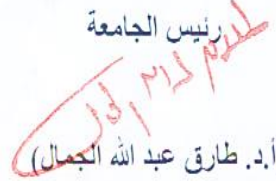 رئيس الجامعة
أ.د. طارق عبد الله الجمال)